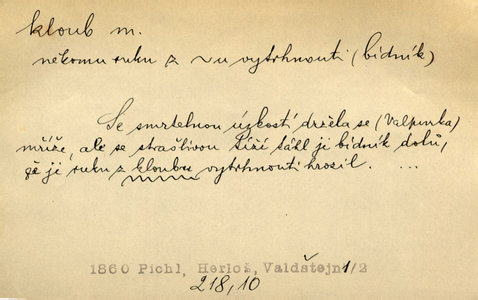 kloub m.
někomu ruku z ~u vytrhnouti (bídník)
Se smrtelnou úzkostí držela se (Valpurka)
mříže, ale se strašlivou tíží táhl ji bídník dolů,
že jí ruku z kloubu vytrhnouti hrozil. ...
1860 Pichl, Herloš, Valdštejn 1/2
218,10